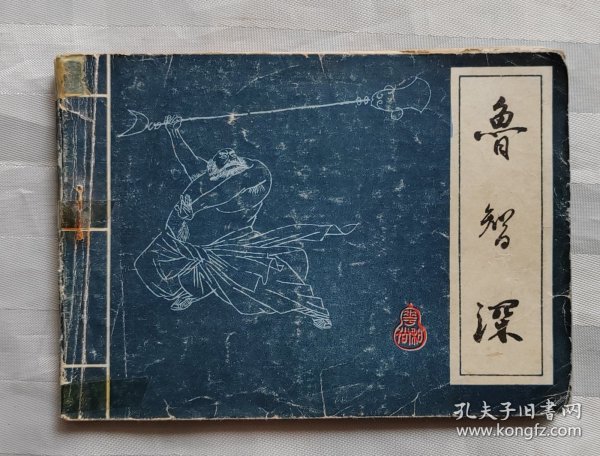 魯智深
花和尚
孔夫子旧书网
www.kongfz.com